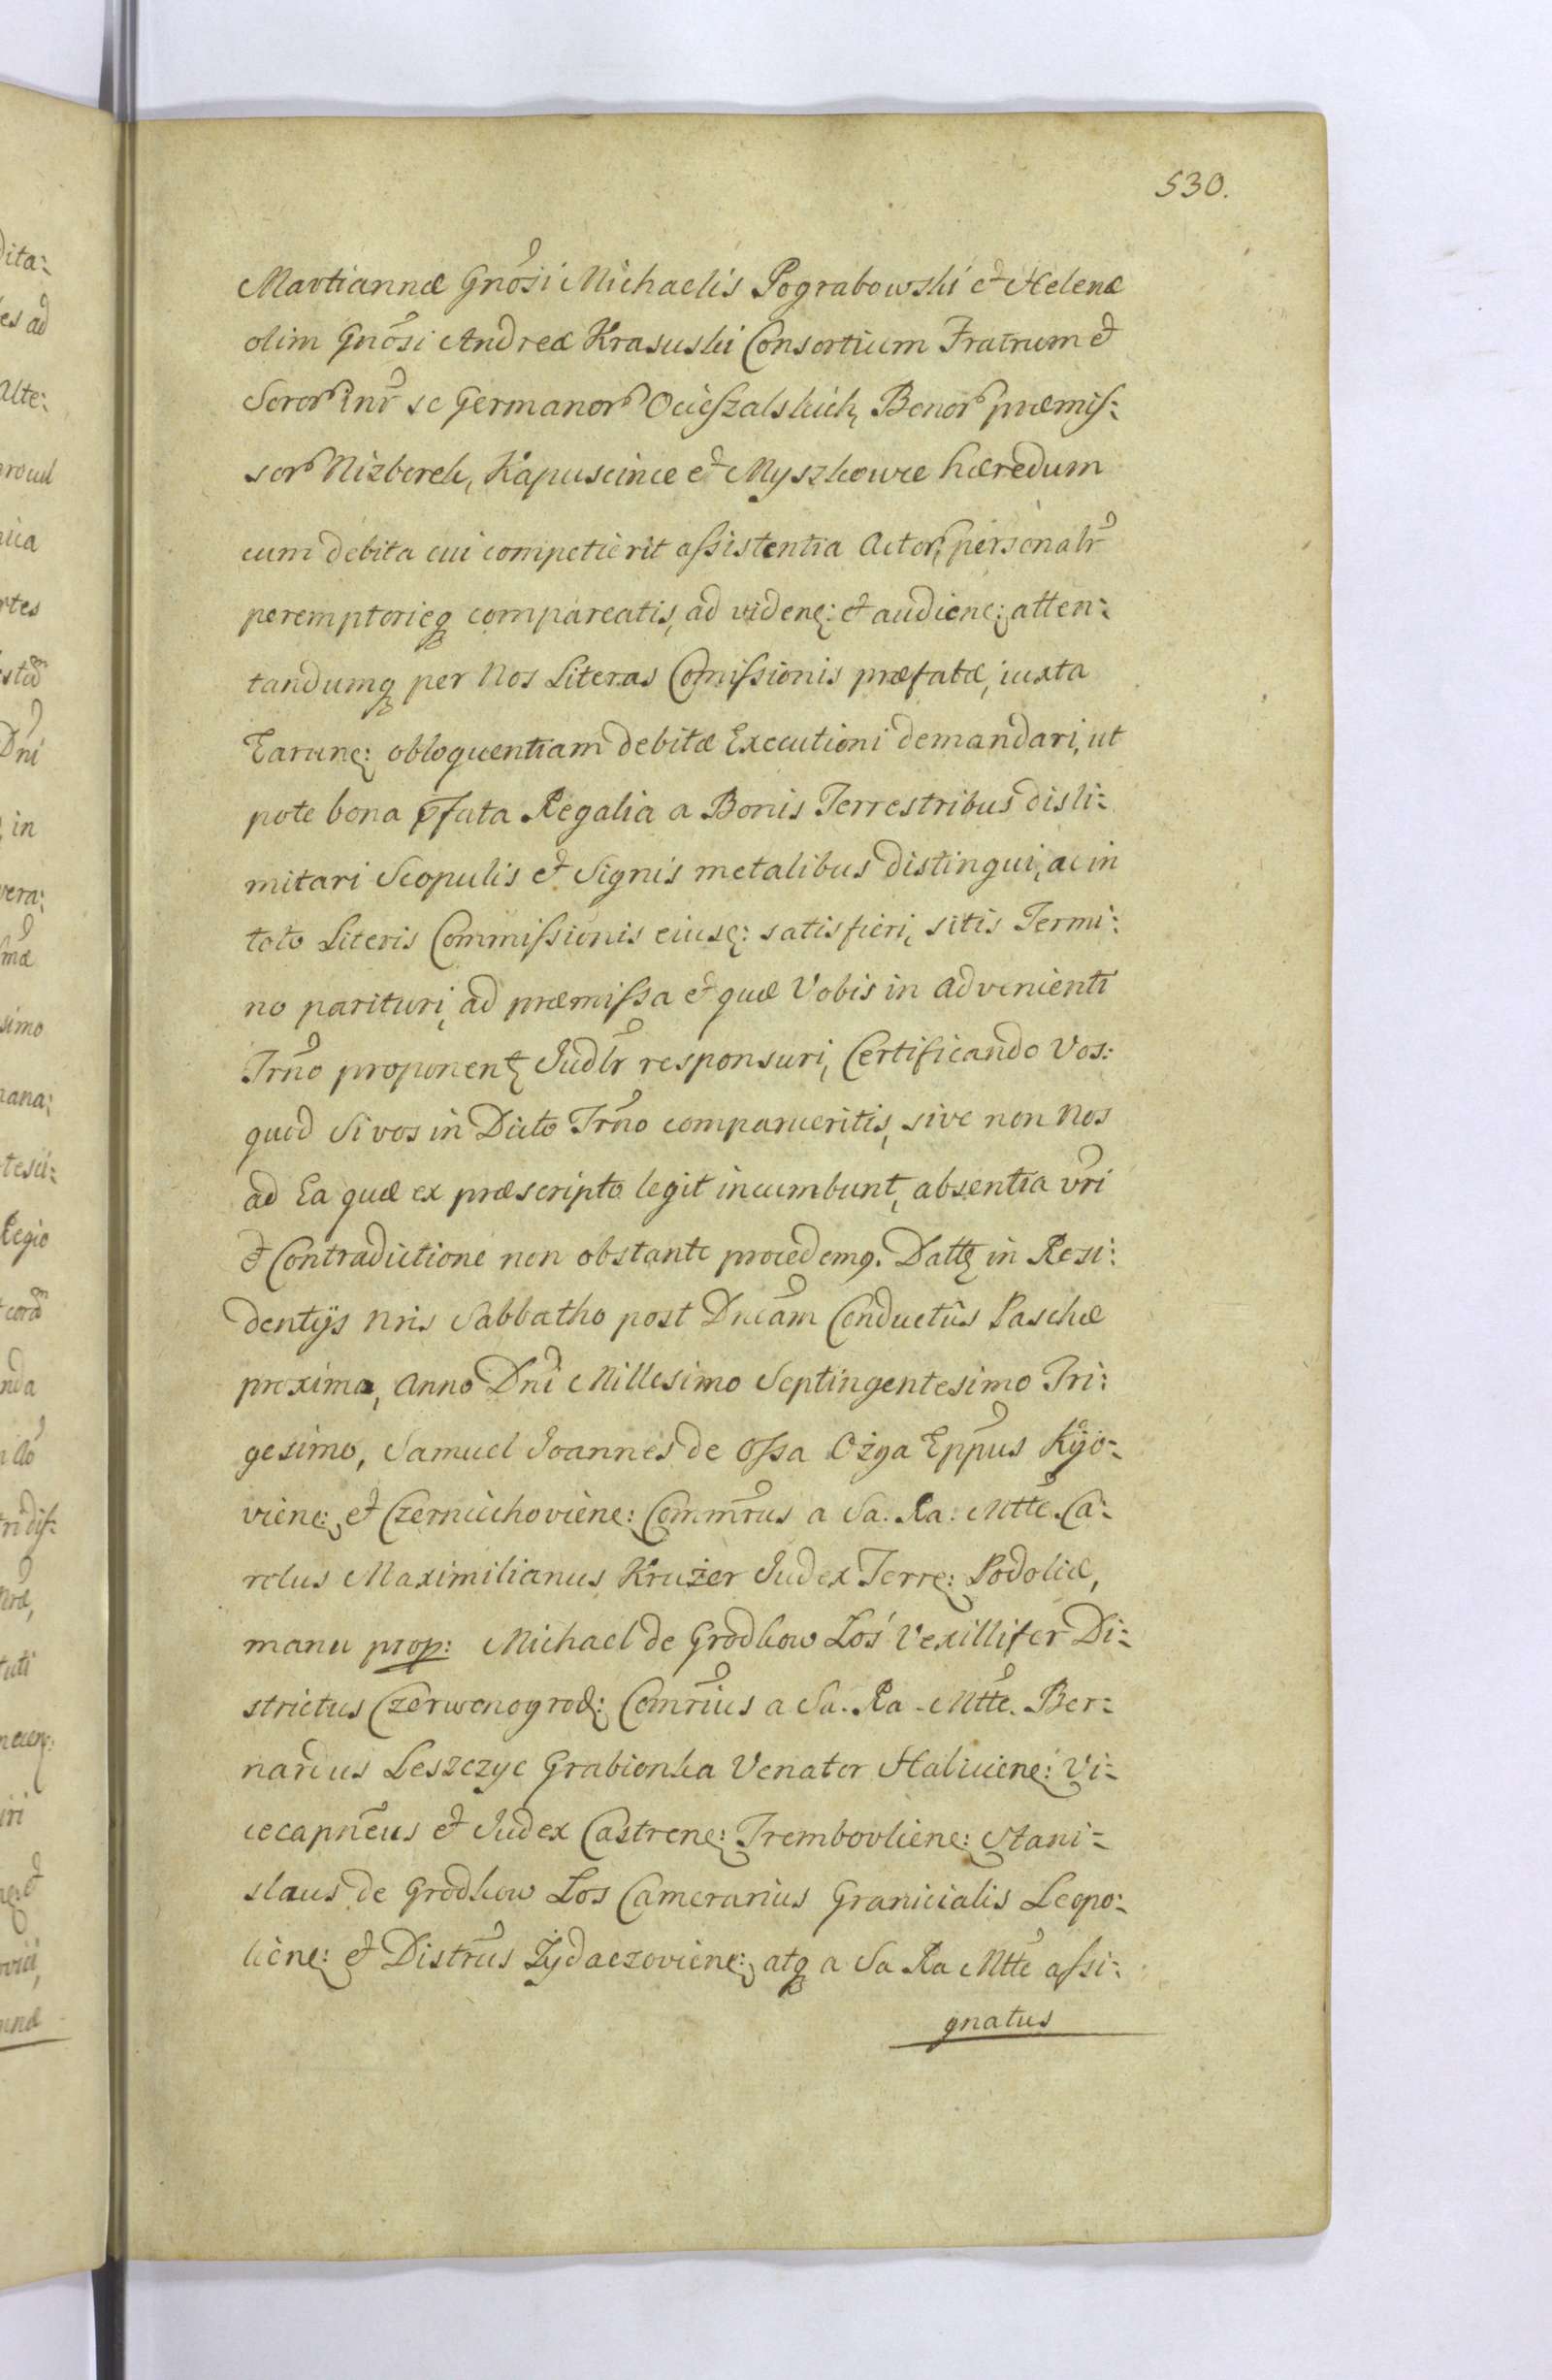 530.
Martiannæ Gnosi Michaelis Pograbowski et Helenæ
olim Gnosi Andreæ Krasuski Consortium Fratrum et
Soror inr se Germanor Ocieszalskich, Bonor præmis:
sor Nizborek, Kapuscince et Myszkowce hæredum
cum debita cui competierit assistentia Actor, personalr
peremptorieq compareatis, ad videne: et audiene: atten:
tandumq per Nos Literas Comissionis præfatæ, iuxta
Earune: obloquentiam debitæ Executioni demandari, ut
pote bona pfata Regalia a Bonis Terrestribus disli:
mitari Scopulis et Signis metalibus distingui, ac in
toto Literis Commissionis eiuse: satisfieri, sitis Termi:
no parituri, ad præmissa et quæ Vobis in advenienti
Trno proponent Judlr responsuri, Certificando Vos:
quod Si vos in Dicto Trno comparueritis, sive non Nos
ad Ea quæ ex præscripto legit incumbunt, absentia vri
et Contradictione non obstante procedemq. Datt in Resi:
dentijs nris Sabbatho post Dnicam Conductus Paschæ
proxima, Anno Dni Millesimo Septingentesimo Tri:
gesimo, Samuel Joannes de Ossa Ożga Eppus Kijo:
viene: et Czerniichoviene: Commrus a Sa. Ra: Mtte. Ca:
rolus Maximilianus Krużer Judex Terre: Podoliæ,
manu prop: Michael de Grodkow Łoś Vexillifer Di:
strictus Czerwonogrod: Comrius a Sa. Ra - Mtte. Ber:
nardus Leszczyc Grabionka Venator Haliciene: Vi:
cecapneus et Judex Castrene: Trembovliene: Stani:
slaus de Grodkow Łos Camerarius Granicialis Leopo:
liene: et Distrus Zydaczoviene: atq a Sa Ra Mtte assi:
gnatus